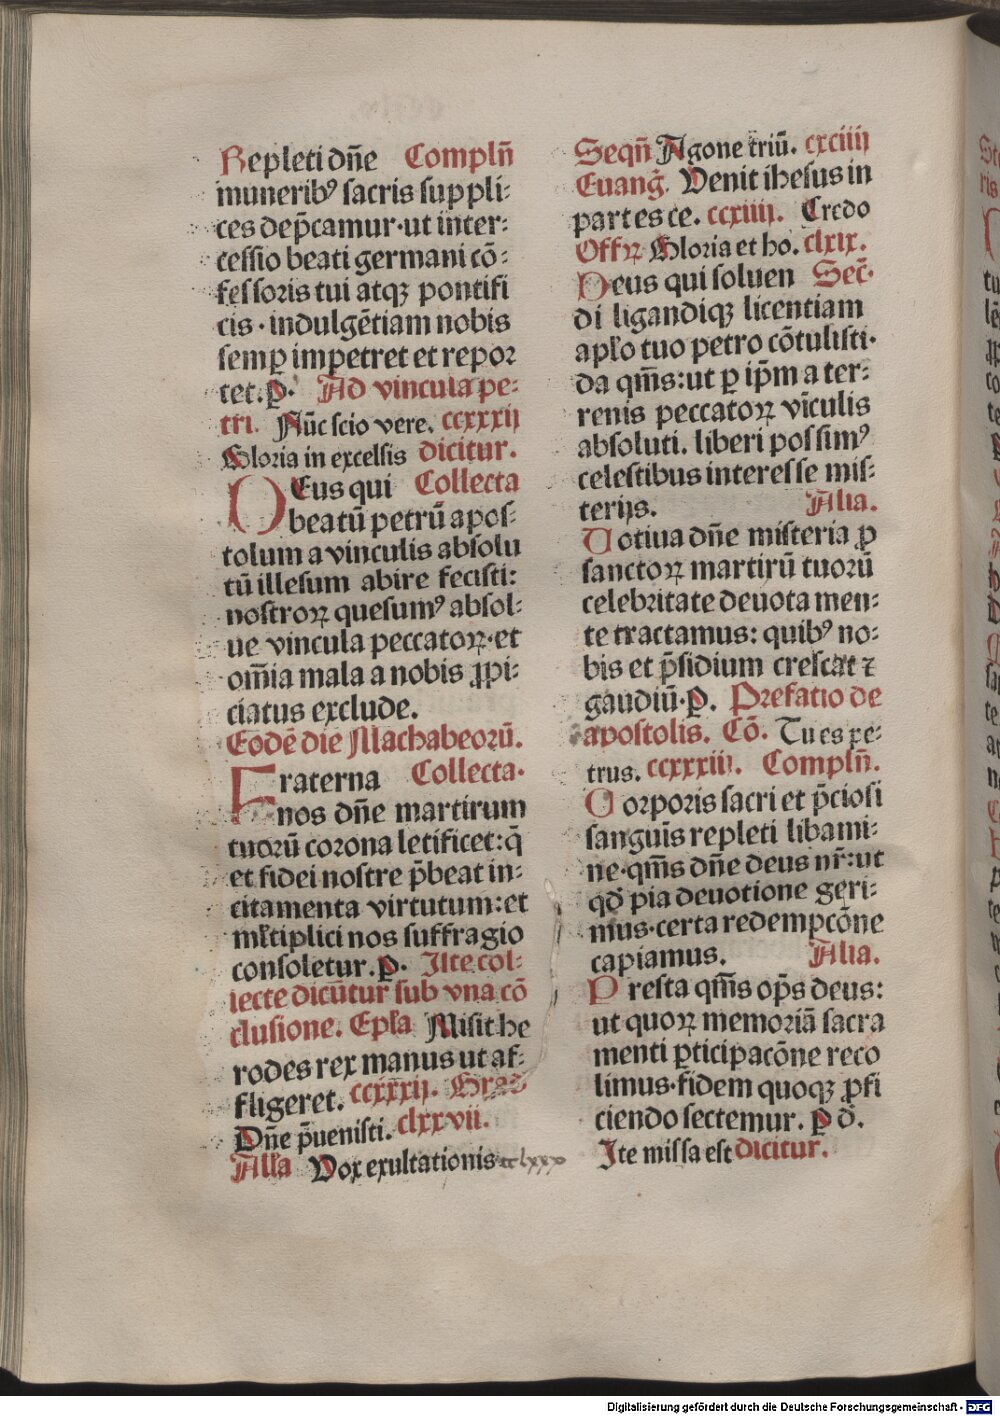 Repleti dn̄e Compln̄
muneribꝰ sacris suppli⸗
ces dep̄camur·ut inter⸗
cessio beati germani cō⸗
fessoris tui atqꝫ pontifi
cis·indulgētiam nobis
semꝑ impetret et repoꝛ
tet.ꝑ. Ad vincula pe⸗
tri. Nūc scio vere. ccxxxij
Gloria in excelsis dicitur.
DEus qui Collecta
beatū petrū apos⸗
tolum a vinculis absolu
tū illesum abire fecisti:
nostroꝝ quesumꝰ absol⸗
ue vincula peccatoꝝ·et
om̄ia mala a nobis ꝓpi⸗
ciatus exclude.
Eodē die Machabeorū.
Fraterna Collecta·
nos dn̄e martirum
tuorū corona letificet:q̄
et fidei nostre p̄beat in⸗
citamenta virtutum:et
ml̄tiplici nos suffragio
consoletur.ꝑ. Iste col⸗
lecte dicūtur sub vna cō
clusione. Epl̄a Misit he
rodes rex manus ut af⸗
fligeret. ccxxxij. Grad̄
Dn̄e p̄uenisti. clxxvii.
All̄a Vox exultationis cclxxx
Seqn̄ Agone triū. cxciiij
Euanḡ. Venit ihesus in
partes ce. ccxiiij. Credo
Offꝝ Gloria et ho. clxix.
Deus qui soluen Sec̄·
di ligandiqꝫ licentiam
apl̄o tuo petro cōtulisti·
da qm̄s:ut ꝑ ip̄m a ter⸗
renis peccatoꝝ vīculis
absoluti. liberi possimꝰ
celestibus interesse mis⸗
terijs. Alia.
Votiua dn̄e misteria ꝓ
sanctoꝝ martirū tuorū
celebritate deuota men⸗
te tractamus: quibꝰ no⸗
bis et p̄sidium crescat ⁊
gaudiū·ꝑ. Prefatio de
apostolis. Cō. Tu es pe⸗
trus. ccxxxiij. Compln̄.
Corporis sacri et p̄ciosi
sanguīs repleti libami⸗
ne·qm̄s dn̄e deus nr̄:ut
qd̄ pia deuotione geri⸗
mus·certa redempcōne
capiamus. Alia.
Presta qm̄s op̄s deus:
ut quoꝝ memoriā sacra
menti ꝑticipacōne reco
limus·fidem quoqꝫ ꝓfi
ciendo sectemur. ꝑ d̄.
Ite missa est dicitur.
Digitalisierung gefördert durch die Deutsche Forschungsgemeinschaft · DFG